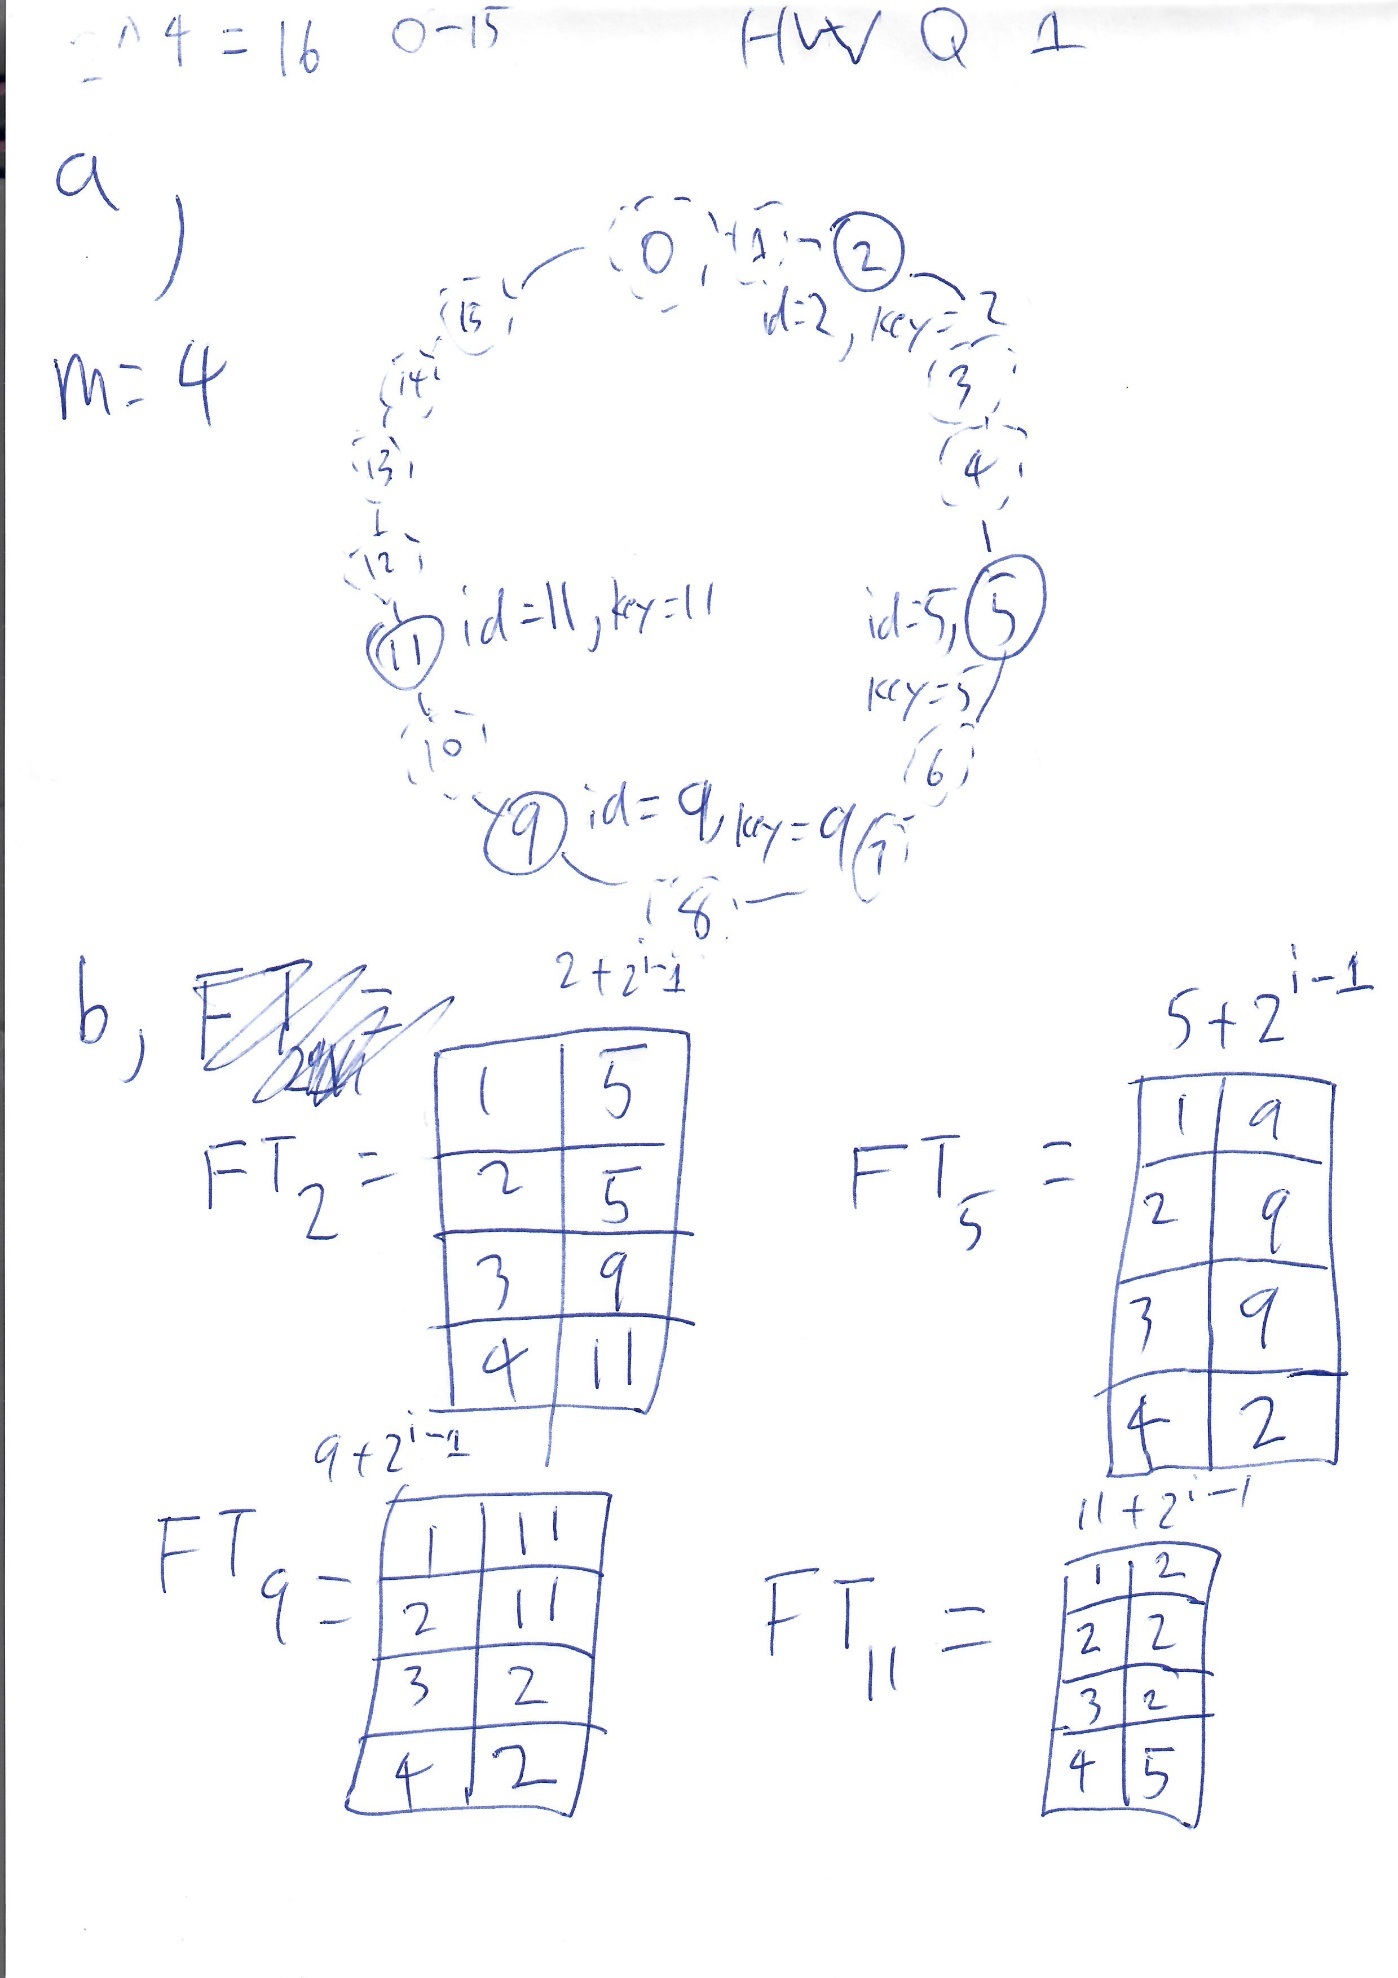 ^4 = 16 0-15 HW Q 1
a,
m=4
0 1 2
id=2, key=2
3
4
5
id=5,
key=5
6
7
8
9
id=9, key=9
10
11
id=11, key=11
12
13
14
15
b,
2+2^i-1
FT2 =
1 5
2 5
3 9
4 11
5+2^i-1
FT5 =
1 9
2 9
3 9
4 2
9+2^i-1
FT9 =
1 11
2 11
3 2
4 2
11+2^i-1
FT11 =
1 2
2 2
3 2
4 5